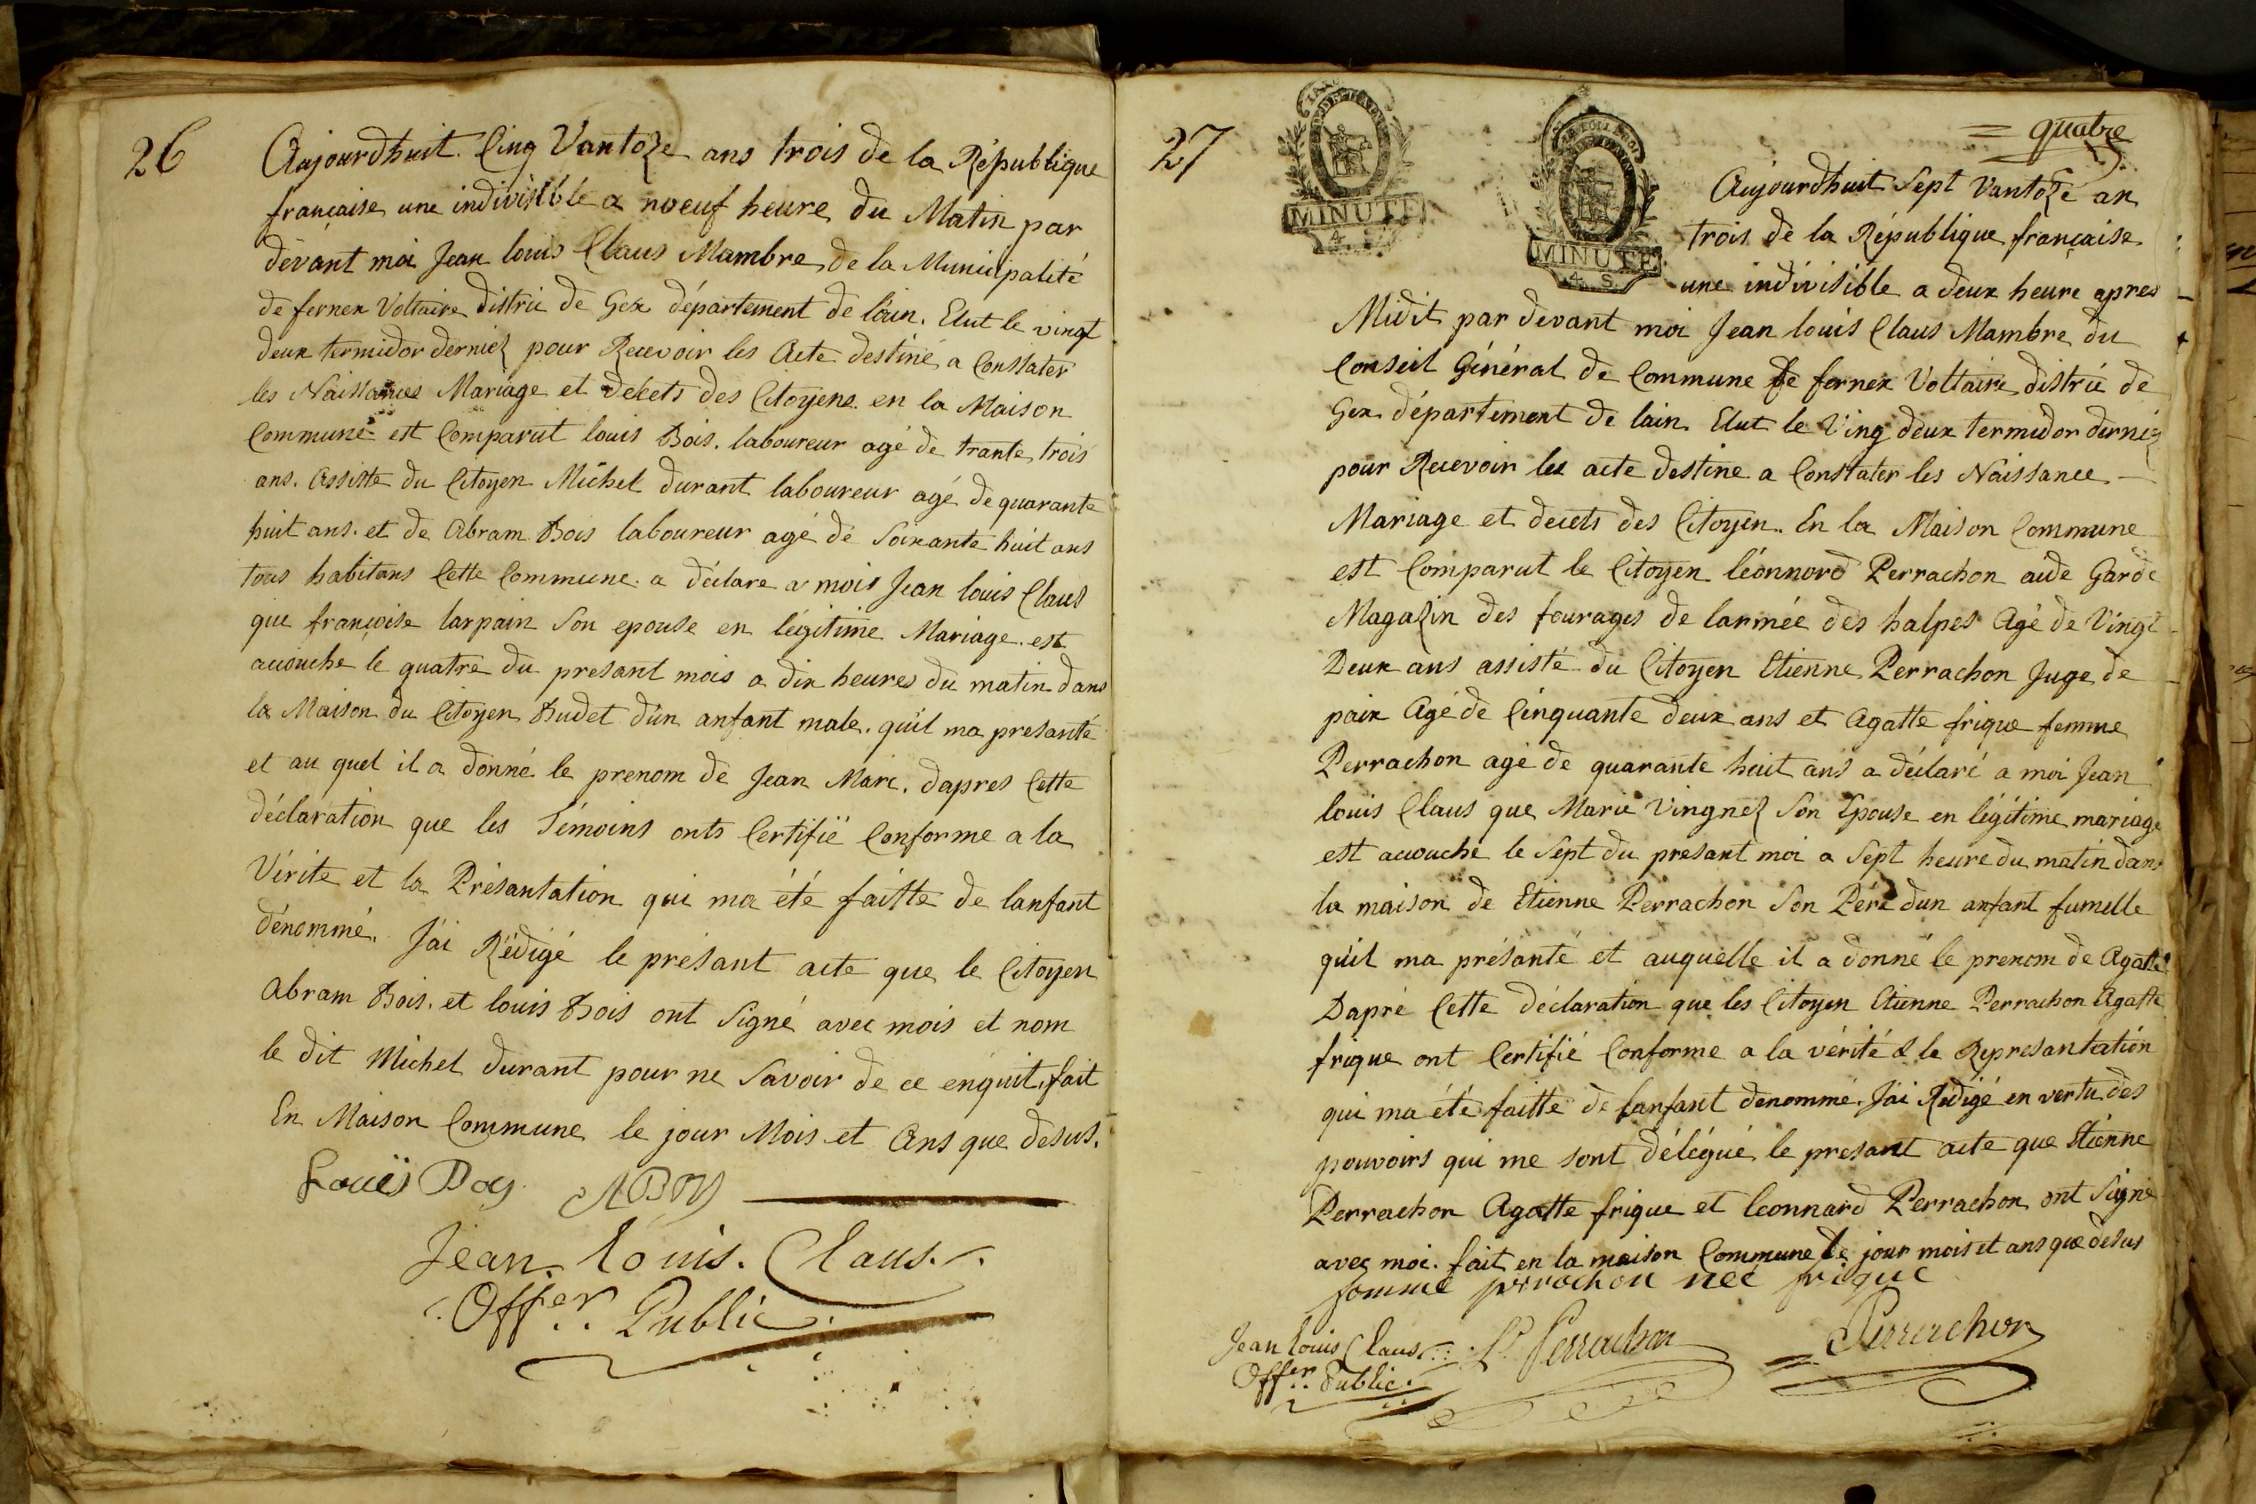 26
Aujourdhuit. Cinq Vantoze ans trois de la République
française une indivisible a noeuf heure du Matin par
dévant moi Jean louis Claus Mambre de la Municipalité
de fernex Voltaire distric de Gex département de l'ain. Elut le vingt
deux termidor dernier pour Recevoir les Acte destiné a Constater
les Naissances Mariage et decets des Citoyens en la Maison
Commune est Comparut louis Bois. laboureur agé de trante trois
ans. Assisté du Citoyen Michel durant laboureur agé de quarante
huit ans. et de Abram Bois laboureur agé dé Soixante huit ans
tous habitans Cette Commune. a déclare a mois Jean louis Claus
que françoise larpain Son epouse en légitime Mariage. est
accouche le quatre du presant mois a dix heures du matin dans
la Maison du Citoyen Budet d'un anfant male. qu'il ma presanté
et au quel il a donné le prenom de Jean Marc. dapres Cette
déclaration que les Témoins onts Certifié Conforme a la
Vérite et la Présantation qui ma été faitte de lanfant
dénommé. J'ai Rédigé le présant acte que le Citoyen
Abram Bois. et louis Bois ont Signé avec mois et nom
le dit Michel durant pour ne Savoir de ce enquit. fait
En Maison Commune le jour Mois et Ans que desus.
Louis Boy ABoy
Jean. Louis. Claus.
Offer. Public.
27
MINUTE
4. S
MINUTE
4. S
= quatre
Aujourdhuit Sept Vantoze an
trois de la République française
une indivisible a deux heure apres
Midit par devant moi Jean louis Claus Mambre du
Conseil Général de Commune de fernex Voltaire distric de
Gex département de lain Elut le Ving deux termidor dernier
pour Recevoir les acte destine a Constater les Naissance
Mariage et decets des Citoyen. En la Maison Commune
est Comparut le Citoyen léonnord Perrachon aide Garde
Magazin des fourages de larmée des halpes Agé de Vingt
Deux ans assisté du Citoyen Etienne Perrachon Juge de
paix Agé de Cinquante deux ans et Agatte frique femme
Perrachon agé de quarante huit ans a déclaré a moi Jean
louis Claus que Marie Vingnez Son Epouse en légitime mariage
est accouche le Sept du presant moi a Sept heure du matin dans
la maison de Etienne Perrachon Son Pére dun anfant fumelle
qu'il ma présanté et auquelle il a donné le prenom de Agatte
Dapré Cette déclaration que les Citoyen Etienne Perrachon Agatte
frique ont Certifié Conforme a la vérité & le Represantation
qui ma été faitte de lanfant denommé. J'ai Rédigé en vertu des
pouvoirs qui me sont délégué le presant acte que Etienne
Perrachon Agatte frique et leonnard Perrachon ont Signé
avec moi. fait en la maison Commune le jour mois et ans que desus
fomme perrochon nee frique
Jean Louis Claus L. Perrachon Perrachon
Offer. Public.